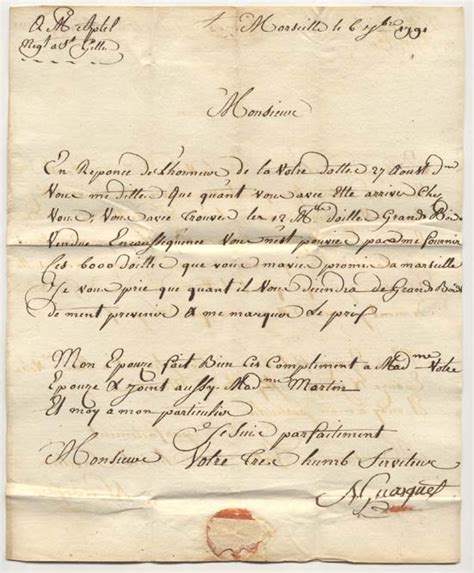 A Mr Aptel
Negt a St Gille
Marseille le 6 7bre 1791
Monsieur
En Reponce de L'honneur de la Votre datte 27 Aoust
Vous me ditte Que quant vous avie Ette arrive Chez
Vous, Vous avie Trouver les 12 d'oille Grands
Vendue Vous n'est pouvie pas me fournir
Ces 6000 d'oille que vous m'avie promis a marseille
Je vous prie que quant il Vous viendra de Grands
de ment prevenir & me marquer Le prix
Mon Epouze fait Bien Ces Compliment a Madme Votre
Epouze & Joint aussy Madme Martin
Et moy a mon particulier
Je suis parfaitement
Monsieur Votre Tres humb Serviteur